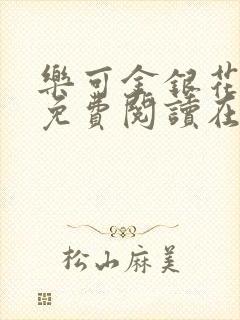 樂可金銀花
免費閱讀在
松山麻美